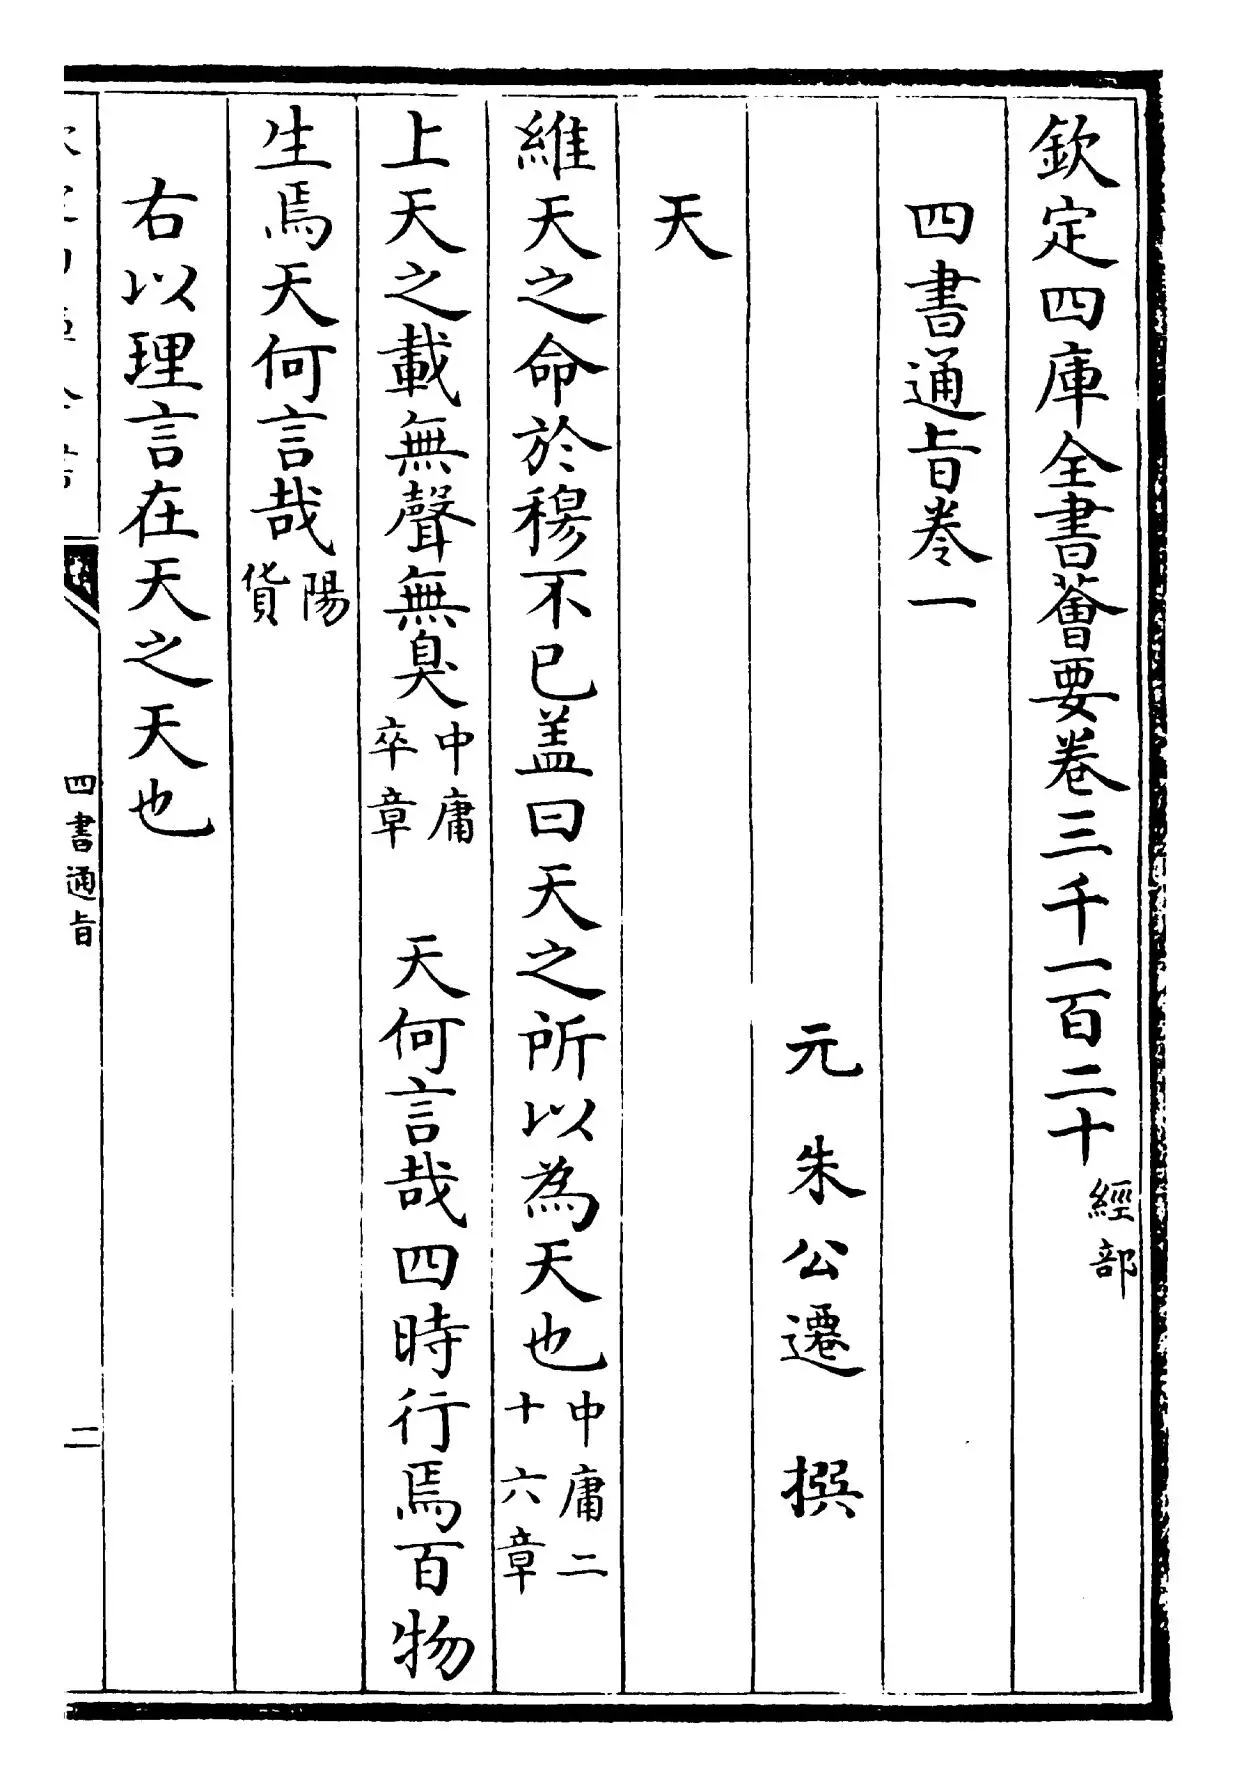 欽定四庫全書薈要卷三千一百二十經部
四書通旨卷一
元朱公遷撰
天
維天之命於穆不已盖曰天之所以為天也中庸二十六章
上天之載無聲無臭中庸卒章 天何言哉四時行焉百物
生焉天何言哉陽貨
右以理言在天之天也
四書通旨
二